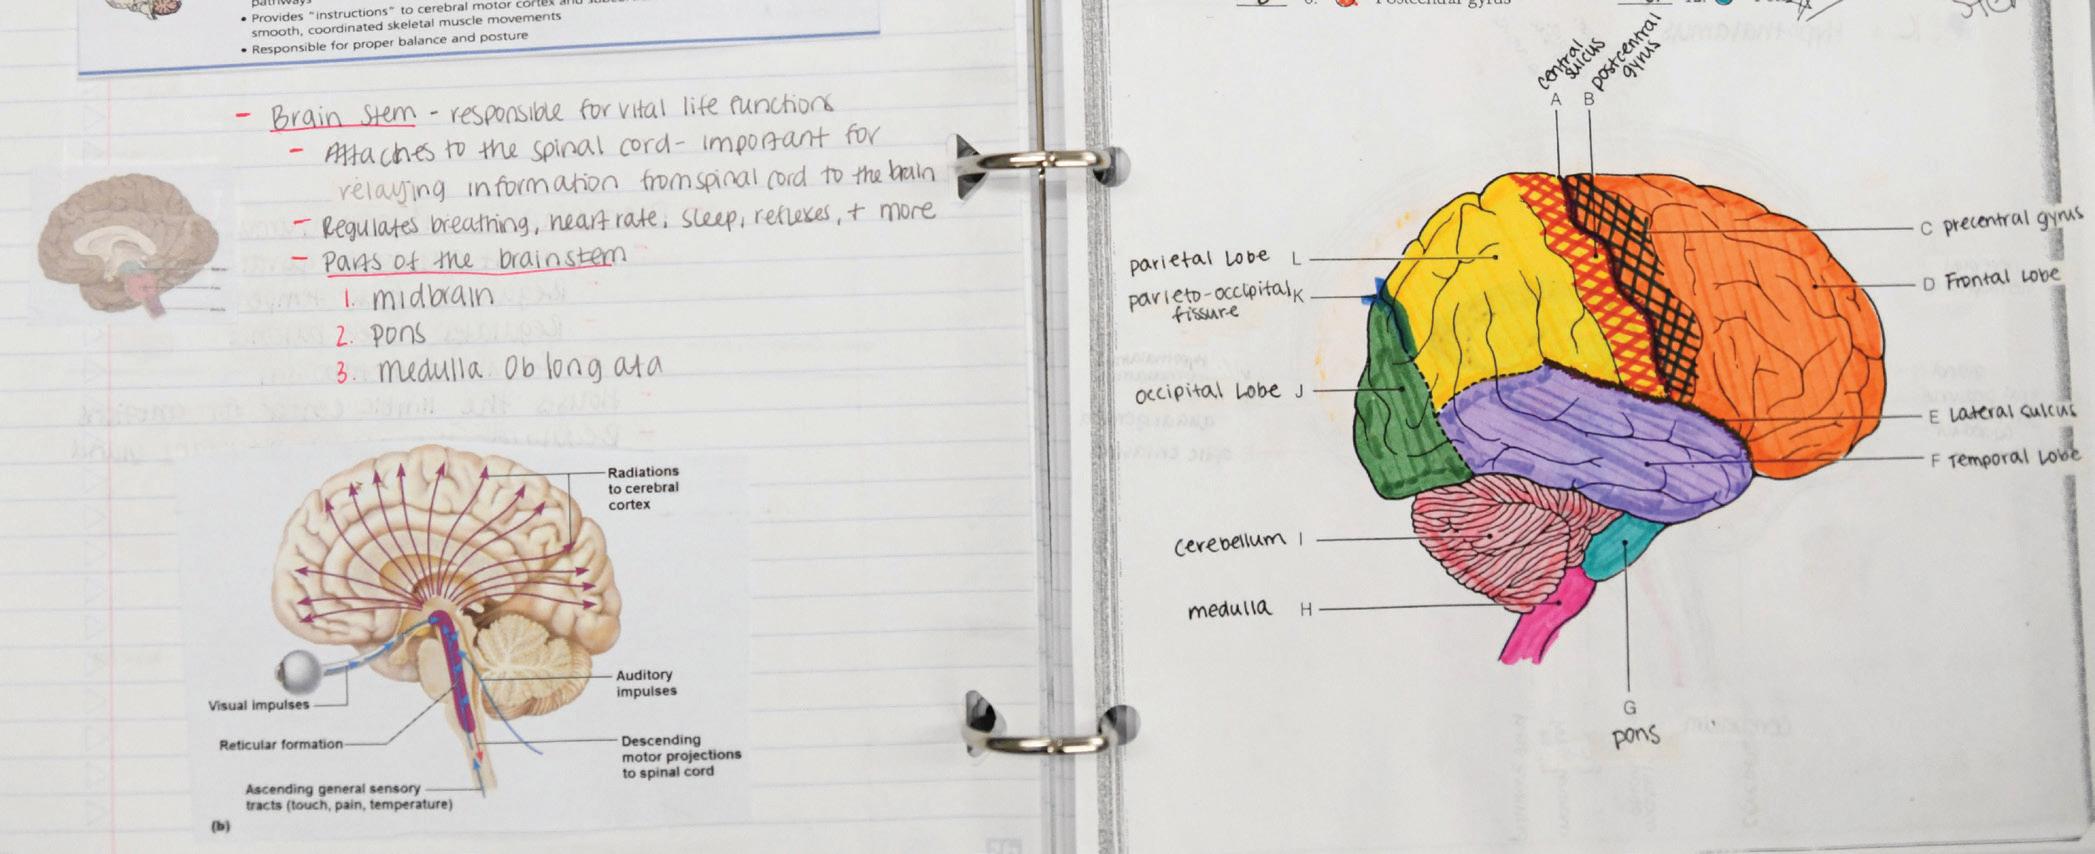 • Provides "instructions" to cerebral motor cortex and
smooth, coordinated skeletal muscle movements
• Responsible for proper balance and posture
- Brain stem - responsible for vital life functions
- Attaches to the spinal cord - important for
relaying information from spinal cord to the brain
- Regulates breathing, heart rate, sleep, reflexes, + more
- Parts of the brainstem
1. midbrain
2. pons
3. medulla oblongata
Radiations
to cerebral
cortex
Visual impulses
Auditory
impulses
Reticular formation
Descending
motor projections
to spinal cord
Ascending general sensory
tracts (touch, pain, temperature)
(b)
Postcentral gyrus
central
sulcus
postcentral
gyrus
A B
C precentral gyrus
parietal lobe L
D Frontal lobe
parieto-occipital K
fissure
occipital lobe J
E Lateral sulcus
F Temporal lobe
cerebellum I
medulla H
G
pons